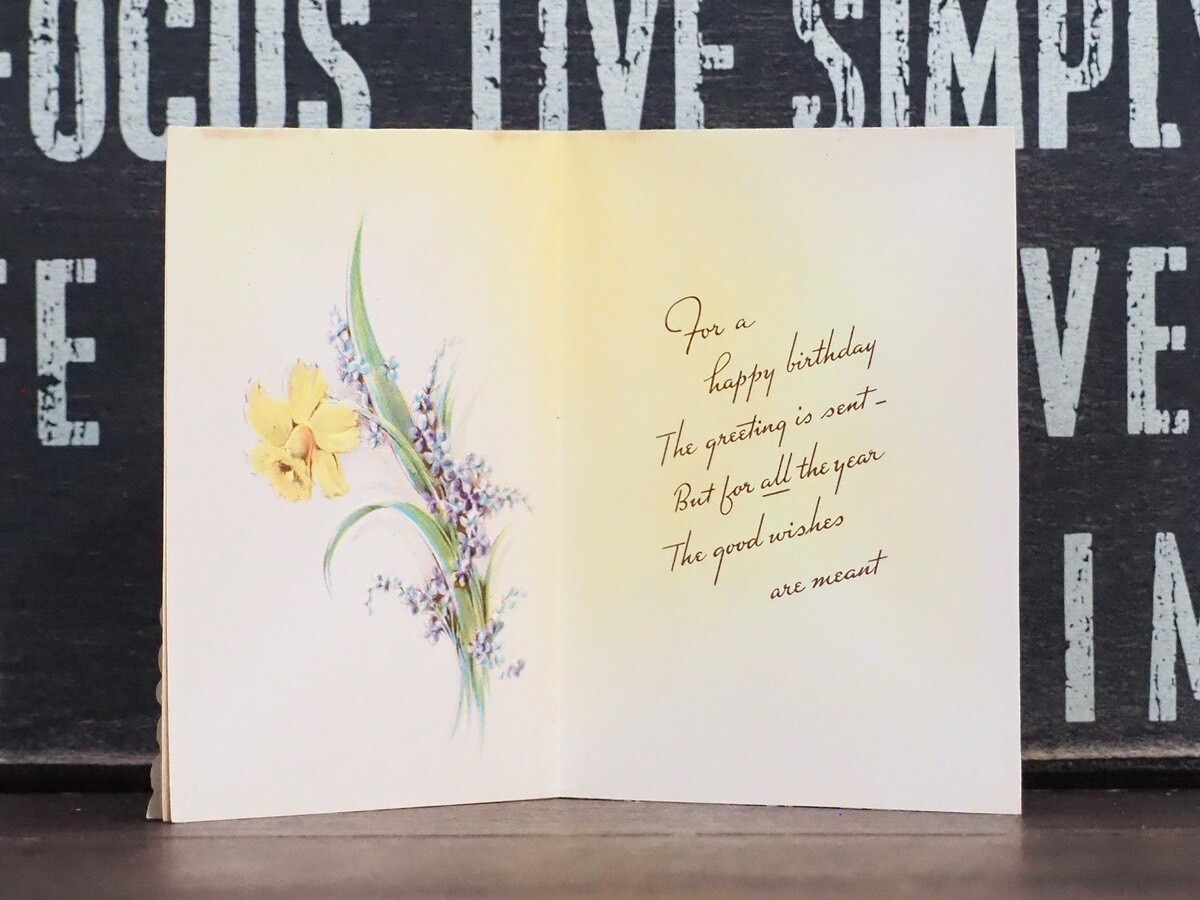 FOCUS LIVE SIMPLY
FE
VE
IN
For a
happy birthday
The greeting is sent –
But for all the year
The good wishes
are meant